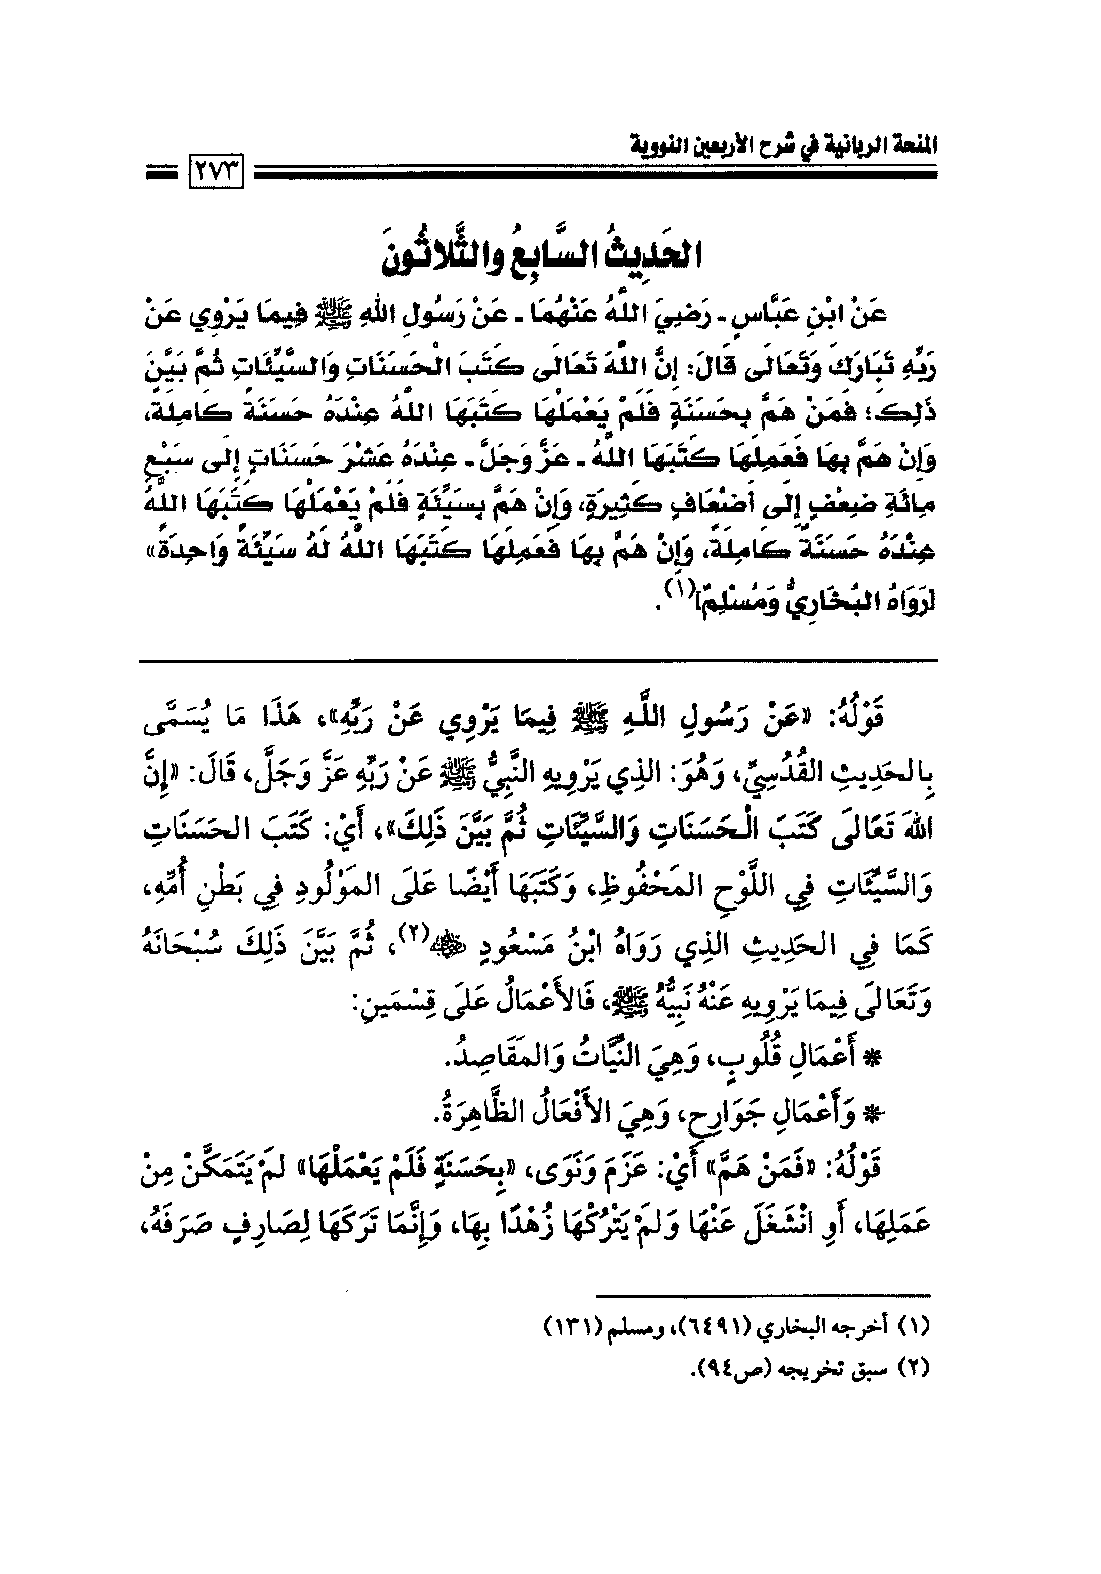 المنحة الربانية في شرح الأربعين النووية
٢٧٣
الحَدِيثُ السَّابِعُ والثَّلاثُونَ
عَنْ ابْنِ عَبَّاسٍ ـ رَضِيَ اللَّهُ عَنْهُمَا ـ عَنْ رَسُولِ اللهِ ﷺ فِيمَا يَرْوِي عَنْ
رَبِّهِ تَبَارَكَ وَتَعَالَى قَالَ: إِنَّ اللَّهَ تَعَالَى كَتَبَ الْحَسَنَاتِ وَالسَّيِّئَاتِ ثُمَّ بَيَّنَ
ذَلِكَ؛ فَمَنْ هَمَّ بِحَسَنَةٍ فَلَمْ يَعْمَلْهَا كَتَبَهَا اللهُ عِنْدَهُ حَسَنَةً كَامِلَةً،
وَإِنْ هَمَّ بِهَا فَعَمِلَهَا كَتَبَهَا اللَّهُ ـ عَزَّ وَجَلَّ ـ عِنْدَهُ عَشْرَ حَسَنَاتٍ إِلَى سَبْعِ
مِائَةِ ضِعْفٍ إِلَى أَضْعَافٍ كَثِيرَةٍ، وَإِنْ هَمَّ بِسَيِّئَةٍ فَلَمْ يَعْمَلْهَا كَتَبَهَا اللهُ
عِنْدَهُ حَسَنَةً كَامِلَةً، وَإِنْ هَمَّ بِهَا فَعَمِلَهَا كَتَبَهَا اللهُ لَهُ سَيِّئَةً وَاحِدَةً»
[رَوَاهُ البُخَارِيُّ وَمُسْلِمٌ](١).
قَوْلُهُ: «عَنْ رَسُولِ اللَّهِ ﷺ فِيمَا يَرْوِي عَنْ رَبِّهِ»، هَذَا مَا يُسَمَّى
بِالحَدِيثِ القُدُسِيِّ، وَهُوَ: الذِي يَرْوِيهِ النَّبِيُّ ﷺ عَنْ رَبِّهِ عَزَّ وَجَلَّ، قَالَ: «إِنَّ
اللهَ تَعَالَى كَتَبَ الْحَسَنَاتِ وَالسَّيِّئَاتِ ثُمَّ بَيَّنَ ذَلِكَ»، أَيْ: كَتَبَ الحَسَنَاتِ
وَالسَّيِّئَاتِ فِي اللَّوْحِ المَحْفُوظِ، وَكَتَبَهَا أَيْضًا عَلَى المَوْلُودِ فِي بَطْنِ أُمِّهِ،
كَمَا فِي الحَدِيثِ الذِي رَوَاهُ ابْنُ مَسْعُودٍ ﵁(٢)، ثُمَّ بَيَّنَ ذَلِكَ سُبْحَانَهُ
وَتَعَالَى فِيمَا يَرْوِيهِ عَنْهُ نَبِيُّهُ ﷺ، فَالأَعْمَالُ عَلَى قِسْمَينِ:
* أَعْمَالِ قُلُوبٍ، وَهِيَ النِّيَّاتُ وَالمَقَاصِدُ.
* وَأَعْمَالِ جَوَارِحٍ، وَهِيَ الأَفْعَالُ الظَّاهِرَةُ.
قَوْلُهُ: «فَمَنْ هَمَّ» أَيْ: عَزَمَ وَنَوَى، «بِحَسَنَةٍ فَلَمْ يَعْمَلْهَا» لَمْ يَتَمَكَّنْ مِنْ
عَمَلِهَا، أَوِ انْشَغَلَ عَنْهَا وَلَمْ يَتْرُكْهَا زُهْدًا بِهَا، وَإِنَّمَا تَرَكَهَا لِصَارِفٍ صَرَفَهُ،
(١) أخرجه البخاري (٦٤٩١)، ومسلم (١٣١)
(٢) سبق تخريجه (ص٩٤).